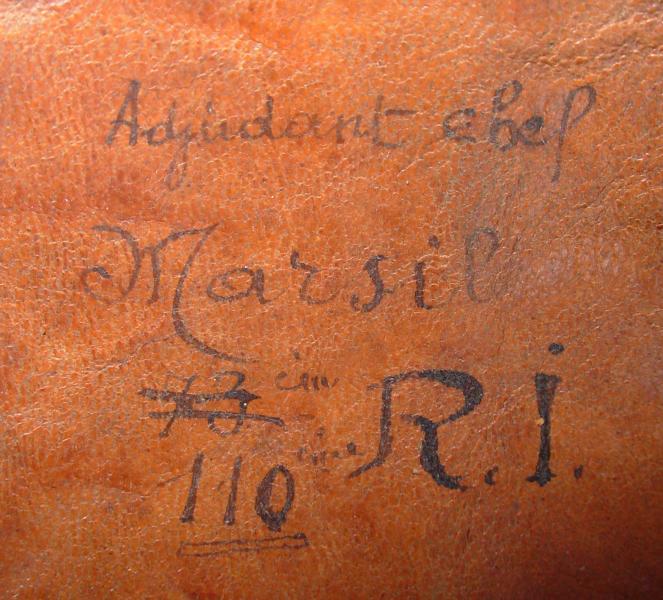 Adjudant chef
Marsil
73 ème R.I.
110 ème